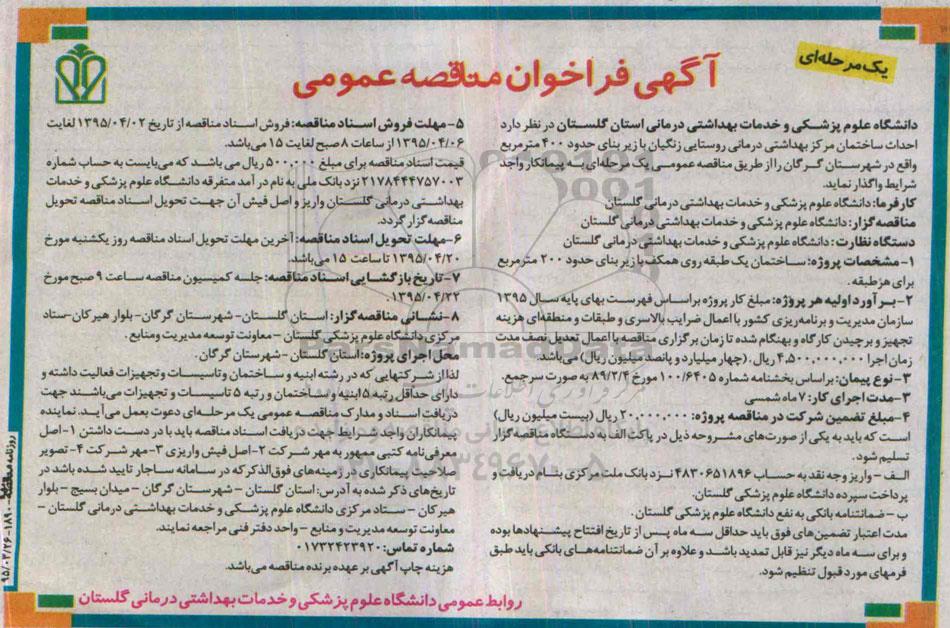 یک مرحله‌ای
آگهی فراخوان مناقصه عمومی
دانشگاه علوم پزشکی و خدمات بهداشتی درمانی استان گلستان در نظر دارد
احداث ساختمان مرکز بهداشتی درمانی روستایی زنگیان با زیر بنای حدود ۴۰۰ مترمربع
واقع در شهرستان گرگان را از طریق مناقصه عمومی یک مرحله‌ای به پیمانکار واجد
شرایط واگذار نماید.
کارفرما: دانشگاه علوم پزشکی و خدمات بهداشتی درمانی گلستان
مناقصه گزار: دانشگاه علوم پزشکی و خدمات بهداشتی درمانی گلستان
دستگاه نظارت: دانشگاه علوم پزشکی و خدمات بهداشتی درمانی گلستان
۱- مشخصات پروژه: ساختمان یک طبقه روی همکف با زیر بنای حدود ۲۰۰ مترمربع
برای هر طبقه.
۲- برآورد اولیه هر پروژه: مبلغ کار پروژه براساس فهرست بهای پایه سال ۱۳۹۵
سازمان مدیریت و برنامه‌ریزی کشور با اعمال ضرایب بالاسری و طبقات و منطقه‌ای هزینه
تجهیز و برچیدن کارگاه و بهنگام شده تا زمان برگزاری مناقصه با اعمال تعدیل نصف مدت
زمان اجرا ۴,۵۰۰,۰۰۰,۰۰۰ ریال. (چهار میلیارد و پانصد میلیون ریال) می‌باشد.
۳- نوع پیمان: براساس بخشنامه شماره ۱۰۰/۶۴۰۵ مورخ ۸۹/۲/۴ به صورت سرجمع.
۳- مدت اجرای کار: ۷ ماه شمسی
۴- مبلغ تضمین شرکت در مناقصه پروژه: ۲۰,۰۰۰,۰۰۰ ریال (بیست میلیون ریال)
است که باید به یکی از صورت‌های مشروحه ذیل در پاکت الف به دستگاه مناقصه گزار
تسلیم شود.
الف - واریز وجه نقد به حساب ۴۸۳۰۶۵۱۸۹۶ نزد بانک ملت مرکزی بنام دریافت و
پرداخت سپرده دانشگاه علوم پزشکی گلستان.
ب - ضمانتنامه بانکی به نفع دانشگاه علوم پزشکی گلستان.
مدت اعتبار تضمین‌های فوق باید حداقل سه ماه پس از تاریخ افتتاح پیشنهادها بوده
و برای سه ماه دیگر نیز قابل تمدید باشد و علاوه بر آن ضمانتنامه‌های بانکی باید طبق
فرمهای مورد قبول تنظیم شود.
۵- مهلت فروش اسناد مناقصه: فروش اسناد مناقصه از تاریخ ۱۳۹۵/۰۴/۰۲ لغایت
۱۳۹۵/۰۴/۰۶ از ساعات ۸ صبح لغایت ۱۵ می‌باشد.
قیمت اسناد مناقصه برای مبلغ ۵۰۰,۰۰۰ ریال می باشد که می‌بایست به حساب شماره
۲۱۷۸۴۴۴۷۵۷۰۰۳ نزد بانک ملی به نام درآمد متفرقه دانشگاه علوم پزشکی و خدمات
بهداشتی درمانی گلستان واریز و اصل فیش آن جهت تحویل اسناد مناقصه تحویل
مناقصه گزار گردد.
۶- مهلت تحویل اسناد مناقصه: آخرین مهلت تحویل اسناد مناقصه روز یکشنبه مورخ
۱۳۹۵/۰۴/۲۰ تا ساعت ۱۵ می‌باشد.
۷- تاریخ بازگشایی اسناد مناقصه: جلسه کمیسیون مناقصه ساعت ۹ صبح مورخ
۱۳۹۵/۰۴/۲۲.
۸- نشانی مناقصه گزار: استان گلستان - شهرستان گرگان - بلوار هیرکان - ستاد
مرکزی دانشگاه علوم پزشکی گلستان - معاونت توسعه مدیریت و منابع.
محل اجرای پروژه: استان گلستان - شهرستان گرگان.
لذا از شرکتهایی که در رشته ابنیه و ساختمان و تاسیسات و تجهیزات فعالیت داشته و
دارای حداقل رتبه ۵ ابنیه و ساختمان و رتبه ۵ تاسیسات و تجهیزات می‌باشند جهت
دریافت اسناد و مدارک مناقصه عمومی یک مرحله‌ای دعوت بعمل می‌آید. نماینده
پیمانکاران واجد شرایط جهت دریافت اسناد مناقصه باید با در دست داشتن ۱- اصل
معرفی نامه کتبی ممهور به مهر شرکت ۲- اصل فیش واریزی ۳- مهر شرکت ۴- تصویر
صلاحیت پیمانکاری در زمینه‌های فوق الذکر که در سامانه ساجار تایید شده باشد در
تاریخ‌های ذکر شده به آدرس: استان گلستان - شهرستان گرگان - میدان بسیج - بلوار
هیرکان - ستاد مرکزی دانشگاه علوم پزشکی و خدمات بهداشتی درمانی گلستان -
معاونت توسعه مدیریت و منابع - واحد دفتر فنی مراجعه نمایند.
شماره تماس: ۰۱۷۳۲۴۲۳۹۲۰
هزینه چاپ آگهی بر عهده برنده مناقصه می‌باشد.
روابط عمومی دانشگاه علوم پزشکی و خدمات بهداشتی درمانی گلستان